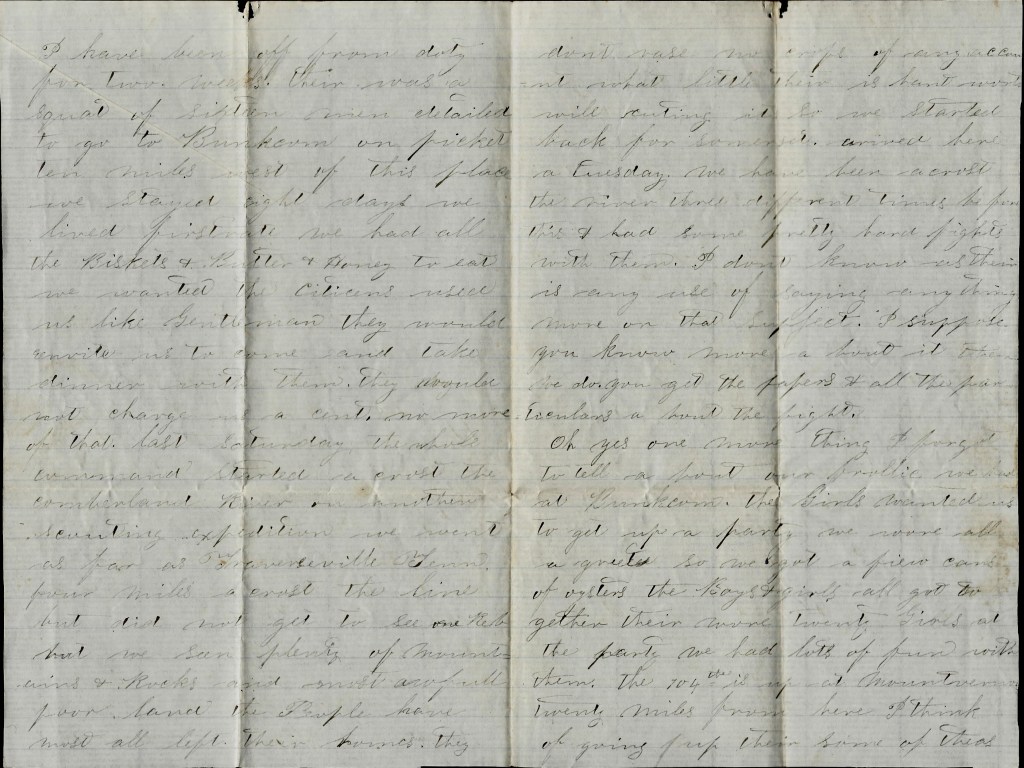 I have been off from duty
for two. weaks. their was a
squat of sixteen men detailed
to go to Bunkcom on picket
ten miles west of this place
we stayed eight days we
lived firstrate we had all
the Biskets & Butter & Honey to eat
we wanted the Citicens used
us like Gentleman they would
envite us to come and take
dinner with them. they would
not charge us a cent. no more
of that. last saturday the whole
command started acrost the
comberland River on another
scouting expedition we went
as far as Traverseville Tenn.
four miles acrost the line
but did not get to see one Reb
but we seen plenty of Mount-
ains & Rocks and most awfull
poor land the People have
most all left. their homes. they
dont rase no crops of any accou
nt what little their is hant worth
will cuting it So we Started
back for Somerset. arived here
a tuesday. we have been acrost
the river three different times be for
this & had some pretty hard fights
with them. I dont know as their
is any use of saying any thing
more on that Supject. I suppose
you know more a bout it then
we do. you get the papers & all the par
ticulars a bout the fight.
Oh yes one more thing I forgot
to tell a bout our frollic we had
at Bunkcom. the Girls wanted us
to get up a party we were all
a greed so we got a fiew cans
of oysters the Boys & girls all got to
gether their were twenty Girls at
the party we had lots of fun with
them. the 104th is up at Mountvernon
twenty miles from here I think
of going up their some of theas